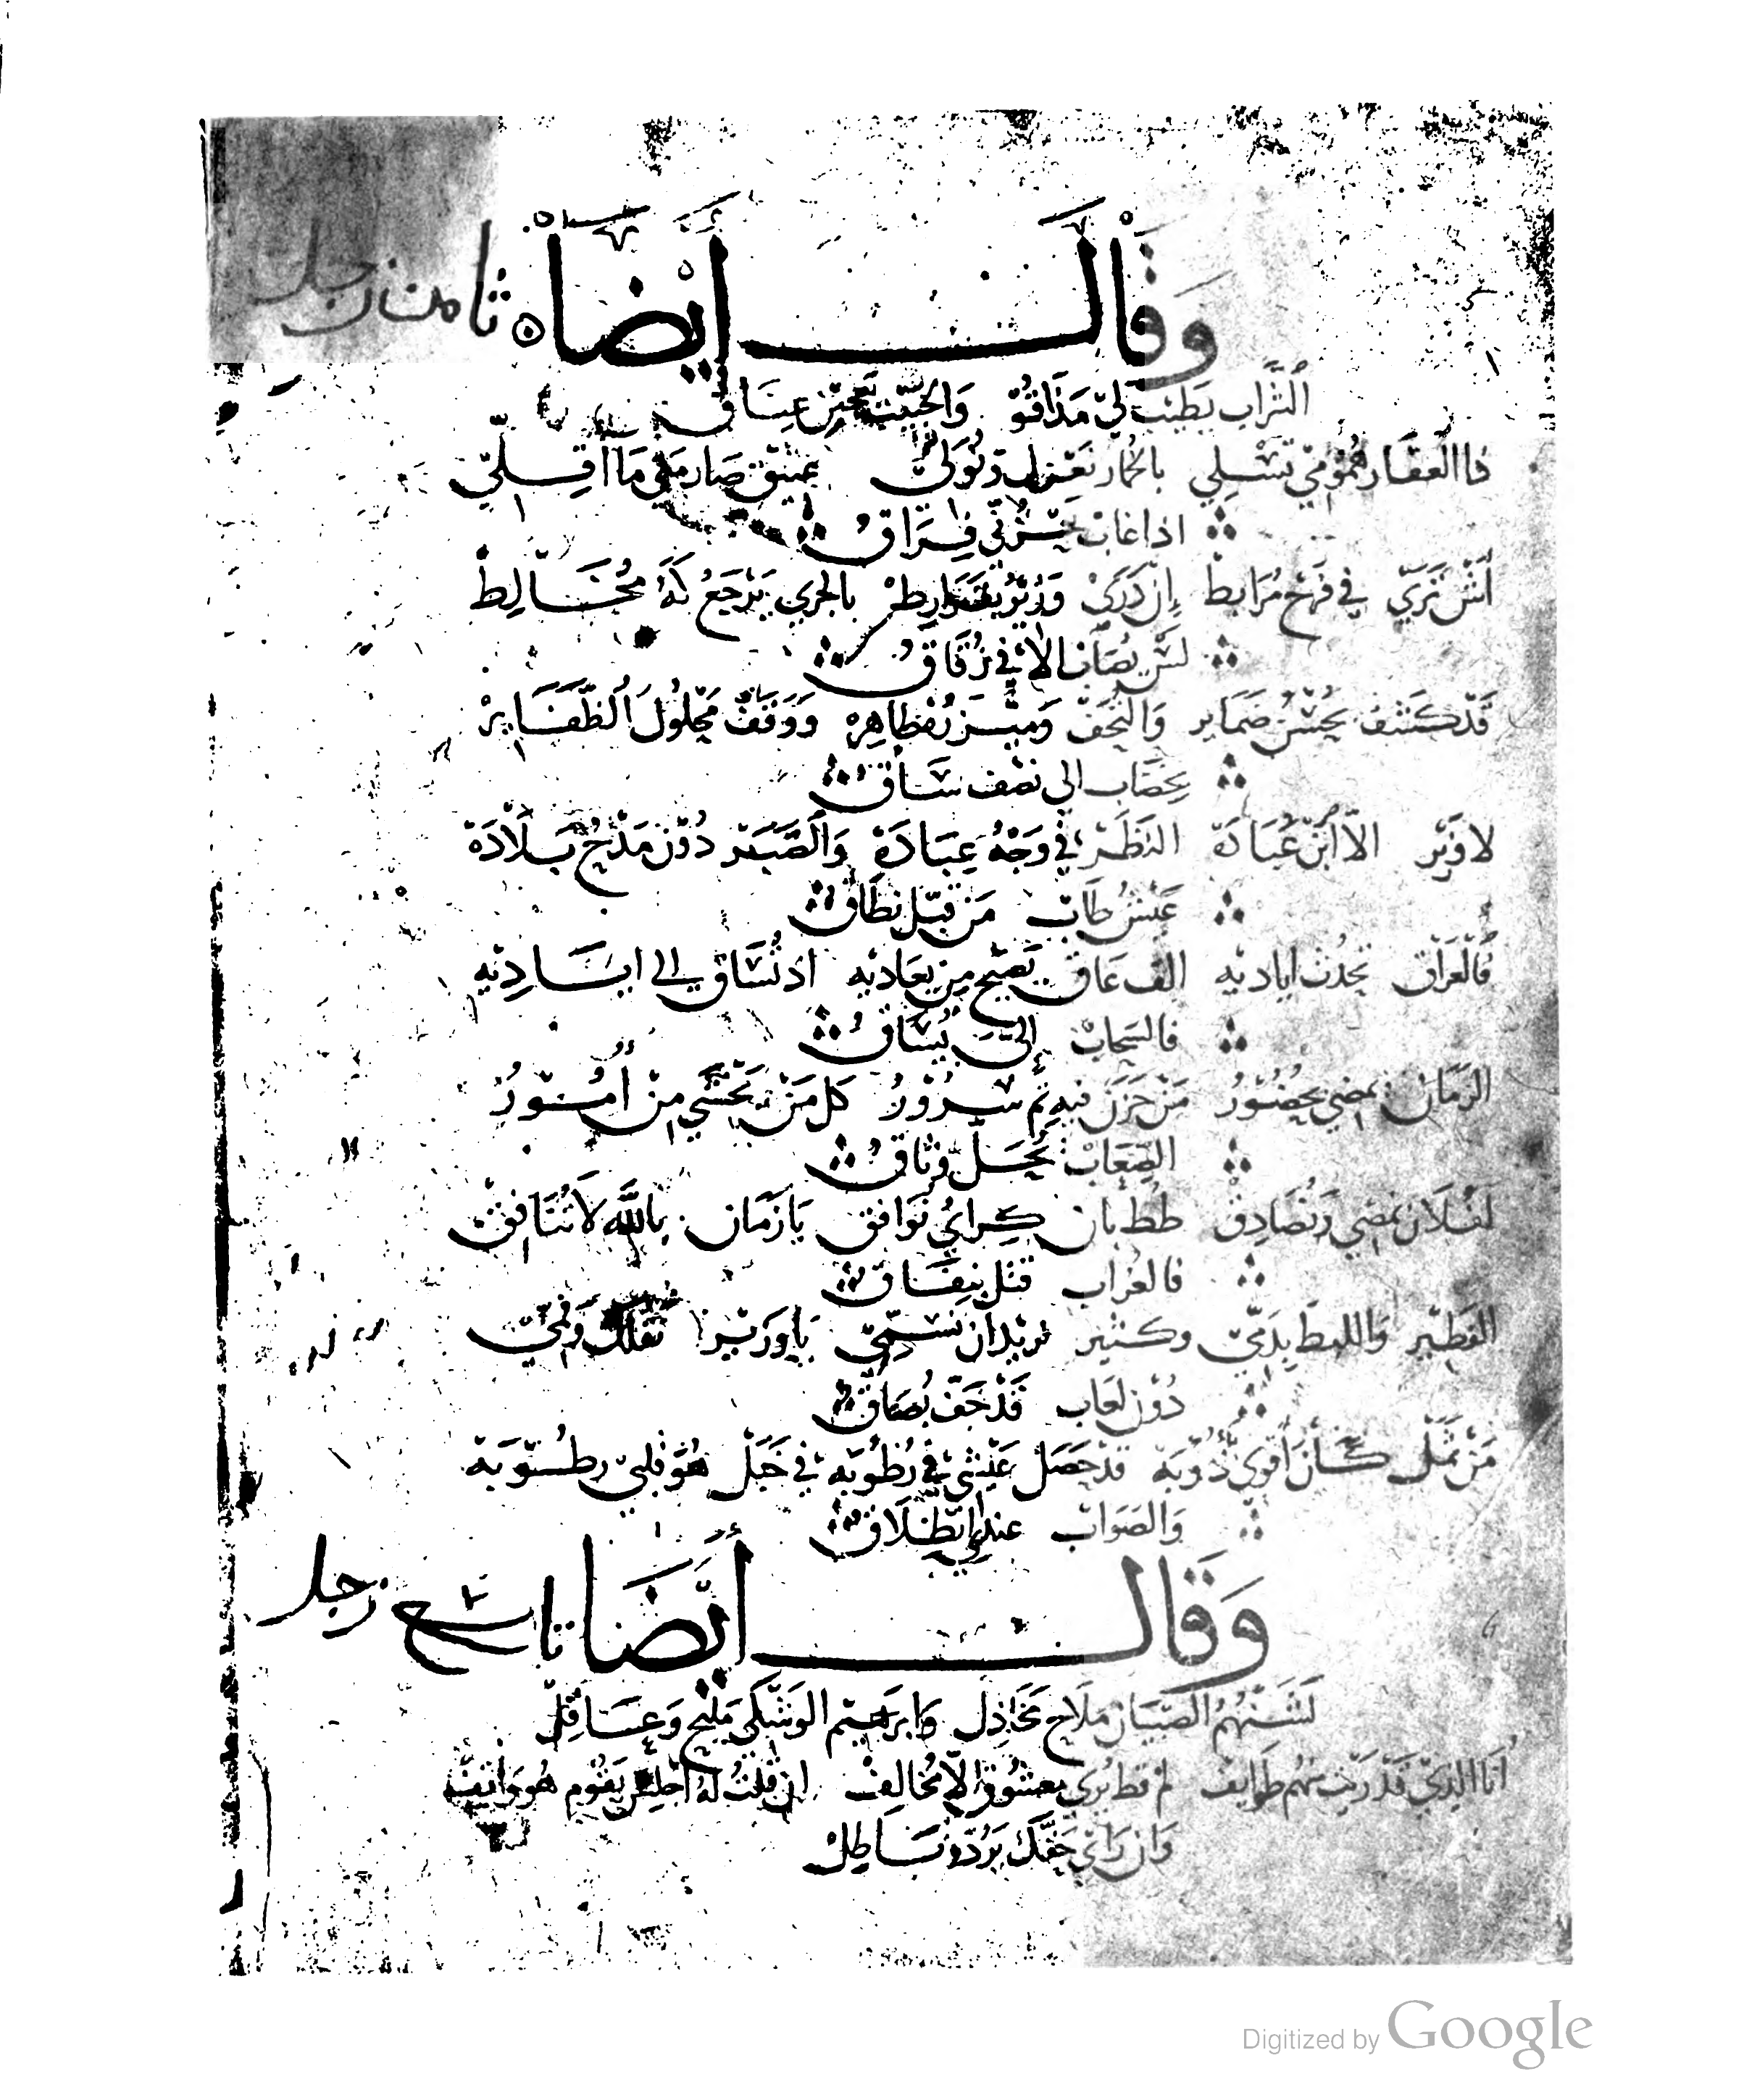 وَقَالَ أَيْضًا ثامن زجل
الشَّراب يَطِيب لِيّ مَذَاقُو وَالحَبِيب عِنَاق
فا العقار همُومي تسْلِي بالخُمار تعزل وتُوَلِيّ صَار مَا أَقِلِّيّ
اذا غاب فِرَاقُ
أَشْ تَرَيّ في فَرَحْ مُرَابِطْ إِنْ بالجري يَرْجَعُ لَهُ مُخَالِطْ
لسْ يصَاب الا في زُقَاقُ
قَدْ كَشَفْ بحُسْن ضمَاير وَالتحَفْ وَوَقَفْ مَحْلُول الظَّفَايِرْ
بِخضَاب الى نصْف سَاقُ
لا وَزِير الاّ ابْن عُبَادَة النَظَر في وَجْهُ عِبَادَةْ وَالصَّبَر دُوْن مَدْحُ بَلَادَةْ
عَيْشُ طَابْ مَنْ قَبّل نِطَاقُ
فَالعرَاق تحْدُث اياديه الف عَاق يَصِيح مِن يعَاديه اذ تُسَاق الى ايَادِيْه
فالسَحابْ إِلَىَّ يُسَاقُ
الزمَان يمضي بحضُوْرُ مَنْ حَزَن فِيه ثم سُرُوْرُ كل مَنْ يَخْشَى مِنْ أُمُوْرُ
الصِّعَابْ يَحُلّ وثاقُ
لَفُلَان نمضِي ونُصَادِق طط بان كراي نوَافق يَا زَمَان بِاللَّه لاَ تُنَافِقْ
فا لغراب قتل بنِفَاقُ
وكثير تريد ان نسَمّيّ يا وزير
دُوْن لعَاب قَدْ جَفّ بُصَاقُ
قَدْ حَصَل عَيْشي في رُطُوبَه في جَبَلْ هُوَ قلبي رطُوبَةْ
وَالصَوَاب عندي انطِلَاقُ
وَقَالَ أَيْضًا تاسع زجل
لسّنهُمُ الصّبيَان مِلَاح تخَاذِل وَابرَهيم الوَشْكَي مَليح وَعَاقِلْ
انَا الذِيّ قَدْ رَيْت مِنْهُم طَوايف لم قط يُرَى معشُوق الاّ مُخالِفْ ان قُلتُ لهُ اجْلِسْ يَقُوم هُو وَاقِفْ
وَان رَايّ حَقّك يَرُدُّه بَاطِلْ
Digitized by Google